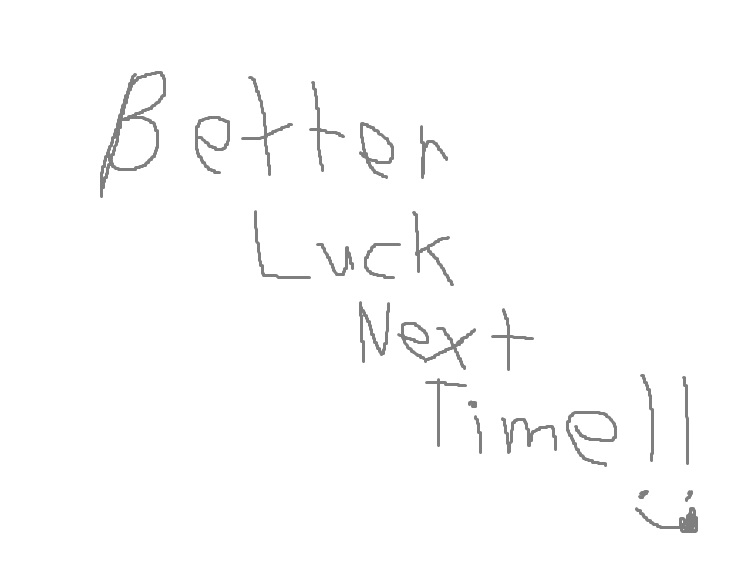 Better
Luck
Next
Time!!